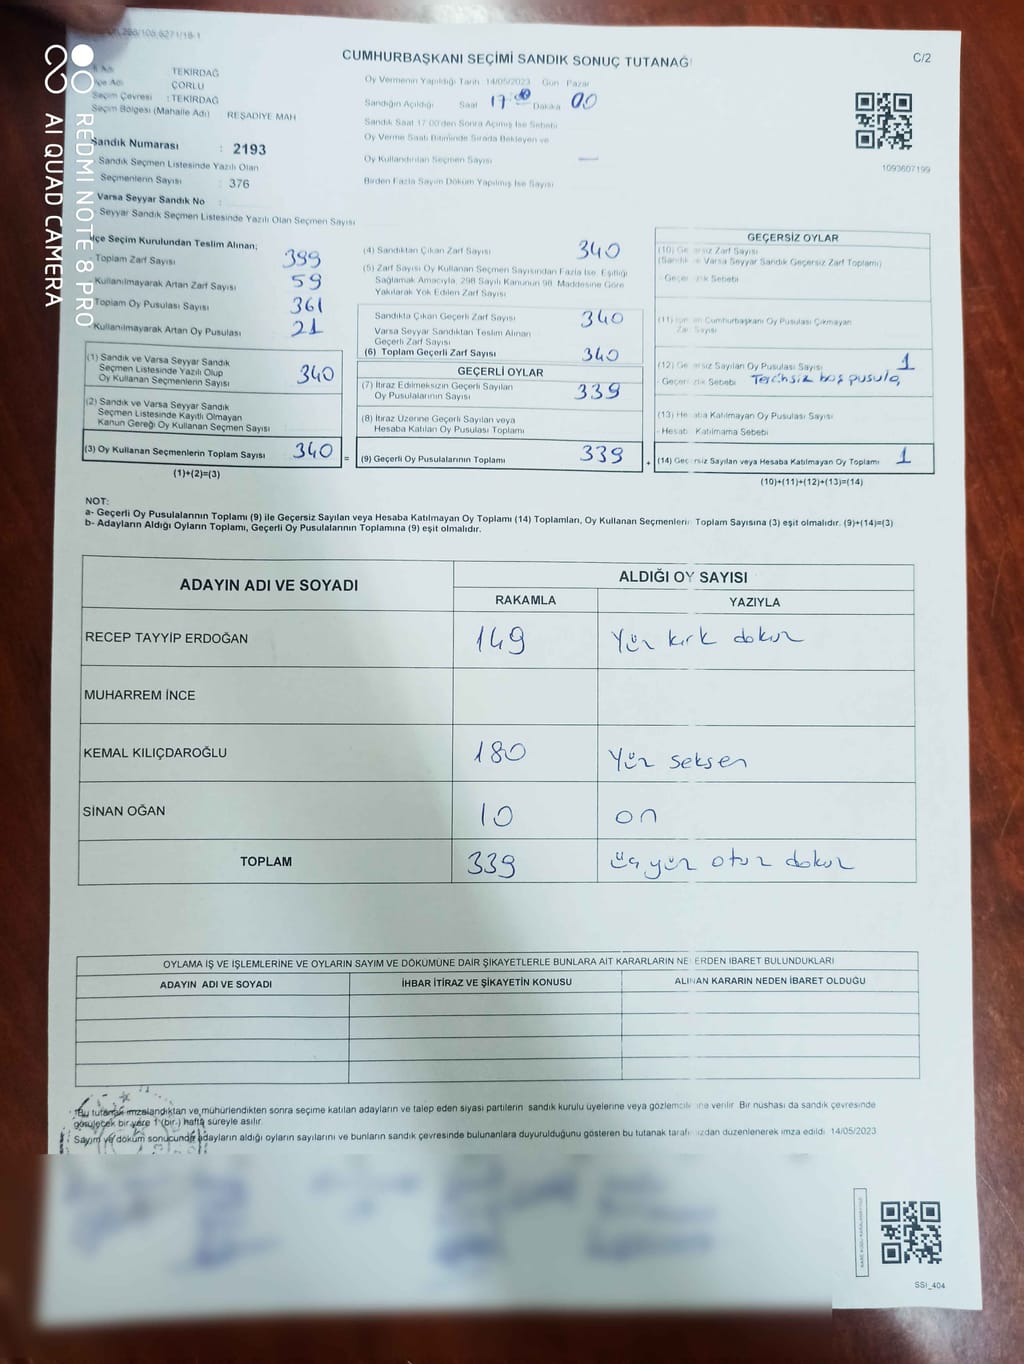 CUMHURBAŞKANI SEÇİMİ SANDIK SONUÇ TUTANAĞI
C/2
TEKİRDAĞ
ÇORLU
Seçim Çevresi : TEKİRDAĞ
Seçim Bölgesi (Mahalle Adı) REŞADİYE MAH
Sandık Numarası : 2193
Sandık Seçmen Listesinde Yazılı Olan
Seçmenlerin Sayısı : 376
Varsa Seyyar Sandık No :
Seyyar Sandık Seçmen Listesinde Yazılı Olan Seçmen Sayısı
Oy Vermenin Yapıldığı Tarih 14/05/2023 Gün Pazar
Sandığın Açıldığı Saat 17 00 Dakika 00
Sandık Saat 17:00'den Sonra Açılmış İse Sebebi
Oy Verme Saati Bitiminde Sırada Bekleyen ve
Oy Kullandırılan Seçmen Sayısı —
Birden Fazla Sayım Döküm Yapılmış İse Sayısı
1093607199
İlçe Seçim Kurulundan Teslim Alınan;
Toplam Zarf Sayısı 399
Kullanılmayarak Artan Zarf Sayısı 59
Toplam Oy Pusulası Sayısı 361
Kullanılmayarak Artan Oy Pusulası 21
(1) Sandık ve Varsa Seyyar Sandık
Seçmen Listesinde Yazılı Olup
Oy Kullanan Seçmenlerin Sayısı 340
(2) Sandık ve Varsa Seyyar Sandık
Seçmen Listesinde Kayıtlı Olmayan
Kanun Gereği Oy Kullanan Seçmen Sayısı
(3) Oy Kullanan Seçmenlerin Toplam Sayısı 340
(1)+(2)=(3)
(4) Sandıktan Çıkan Zarf Sayısı 340
(5) Zarf Sayısı Oy Kullanan Seçmen Sayısından Fazla İse, Eşitliği
Sağlamak Amacıyla, 298 Sayılı Kanunun 98. Maddesine Göre
Yakılarak Yok Edilen Zarf Sayısı
Sandıkta Çıkan Geçerli Zarf Sayısı 340
Varsa Seyyar Sandıktan Teslim Alınan
Geçerli Zarf Sayısı
(6) Toplam Geçerli Zarf Sayısı 340
GEÇERLİ OYLAR
(7) İtiraz Edilmeksizin Geçerli Sayılan
Oy Pusulalarının Sayısı 339
(8) İtiraz Üzerine Geçerli Sayılan veya
Hesaba Katılan Oy Pusulası Toplamı
= (9) Geçerli Oy Pusulalarının Toplamı 339
GEÇERSİZ OYLAR
(10) Geçersiz Zarf Sayısı
(Sandık ve Varsa Seyyar Sandık Geçersiz Zarf Toplamı)
Geçersizlik Sebebi
(11) Cumhurbaşkanı Oy Pusulası Çıkmayan
Zarf Sayısı
(12) Geçersiz Sayılan Oy Pusulası Sayısı 1
Geçersizlik Sebebi Tercihsiz boş pusula
(13) Hesaba Katılmayan Oy Pusulası Sayısı
Hesaba Katılmama Sebebi
+ (14) Geçersiz Sayılan veya Hesaba Katılmayan Oy Toplamı 1
(10)+(11)+(12)+(13)=(14)
NOT:
a- Geçerli Oy Pusulalarının Toplamı (9) ile Geçersiz Sayılan veya Hesaba Katılmayan Oy Toplamı (14) Toplamları, Oy Kullanan Seçmenlerin Toplam Sayısına (3) eşit olmalıdır. (9)+(14)=(3)
b- Adayların Aldığı Oyların Toplamı, Geçerli Oy Pusulalarının Toplamına (9) eşit olmalıdır.
ADAYIN ADI VE SOYADI
ALDIĞI OY SAYISI
RAKAMLA
YAZIYLA
RECEP TAYYİP ERDOĞAN 149 Yüz kırk dokuz
MUHARREM İNCE
KEMAL KILIÇDAROĞLU 180 Yüz seksen
SİNAN OĞAN 10 on
TOPLAM 339 üç yüz otuz dokuz
OYLAMA İŞ VE İŞLEMLERİNE VE OYLARIN SAYIM VE DÖKÜMÜNE DAİR ŞİKAYETLERLE BUNLARA AİT KARARLARIN NELERDEN İBARET BULUNDUKLARI
ADAYIN ADI VE SOYADI
İHBAR İTİRAZ VE ŞİKAYETİN KONUSU
ALINAN KARARIN NEDEN İBARET OLDUĞU
Bu tutanak imzalandıktan ve mühürlendikten sonra seçime katılan adayların ve talep eden siyasi partilerin sandık kurulu üyelerine veya gözlemcilerine verilir. Bir nüshası da sandık çevresinde
görülecek bir yere 1 (bir) hafta süreyle asılır.
Sayım ve döküm sonucunda adayların aldığı oyların sayılarını ve bunların sandık çevresinde bulunanlara duyurulduğunu gösteren bu tutanak tarafımızdan düzenlenerek imza edildi. 14/05/2023
SSI_404
REDMI NOTE 8 PRO
AI QUAD CAMERA